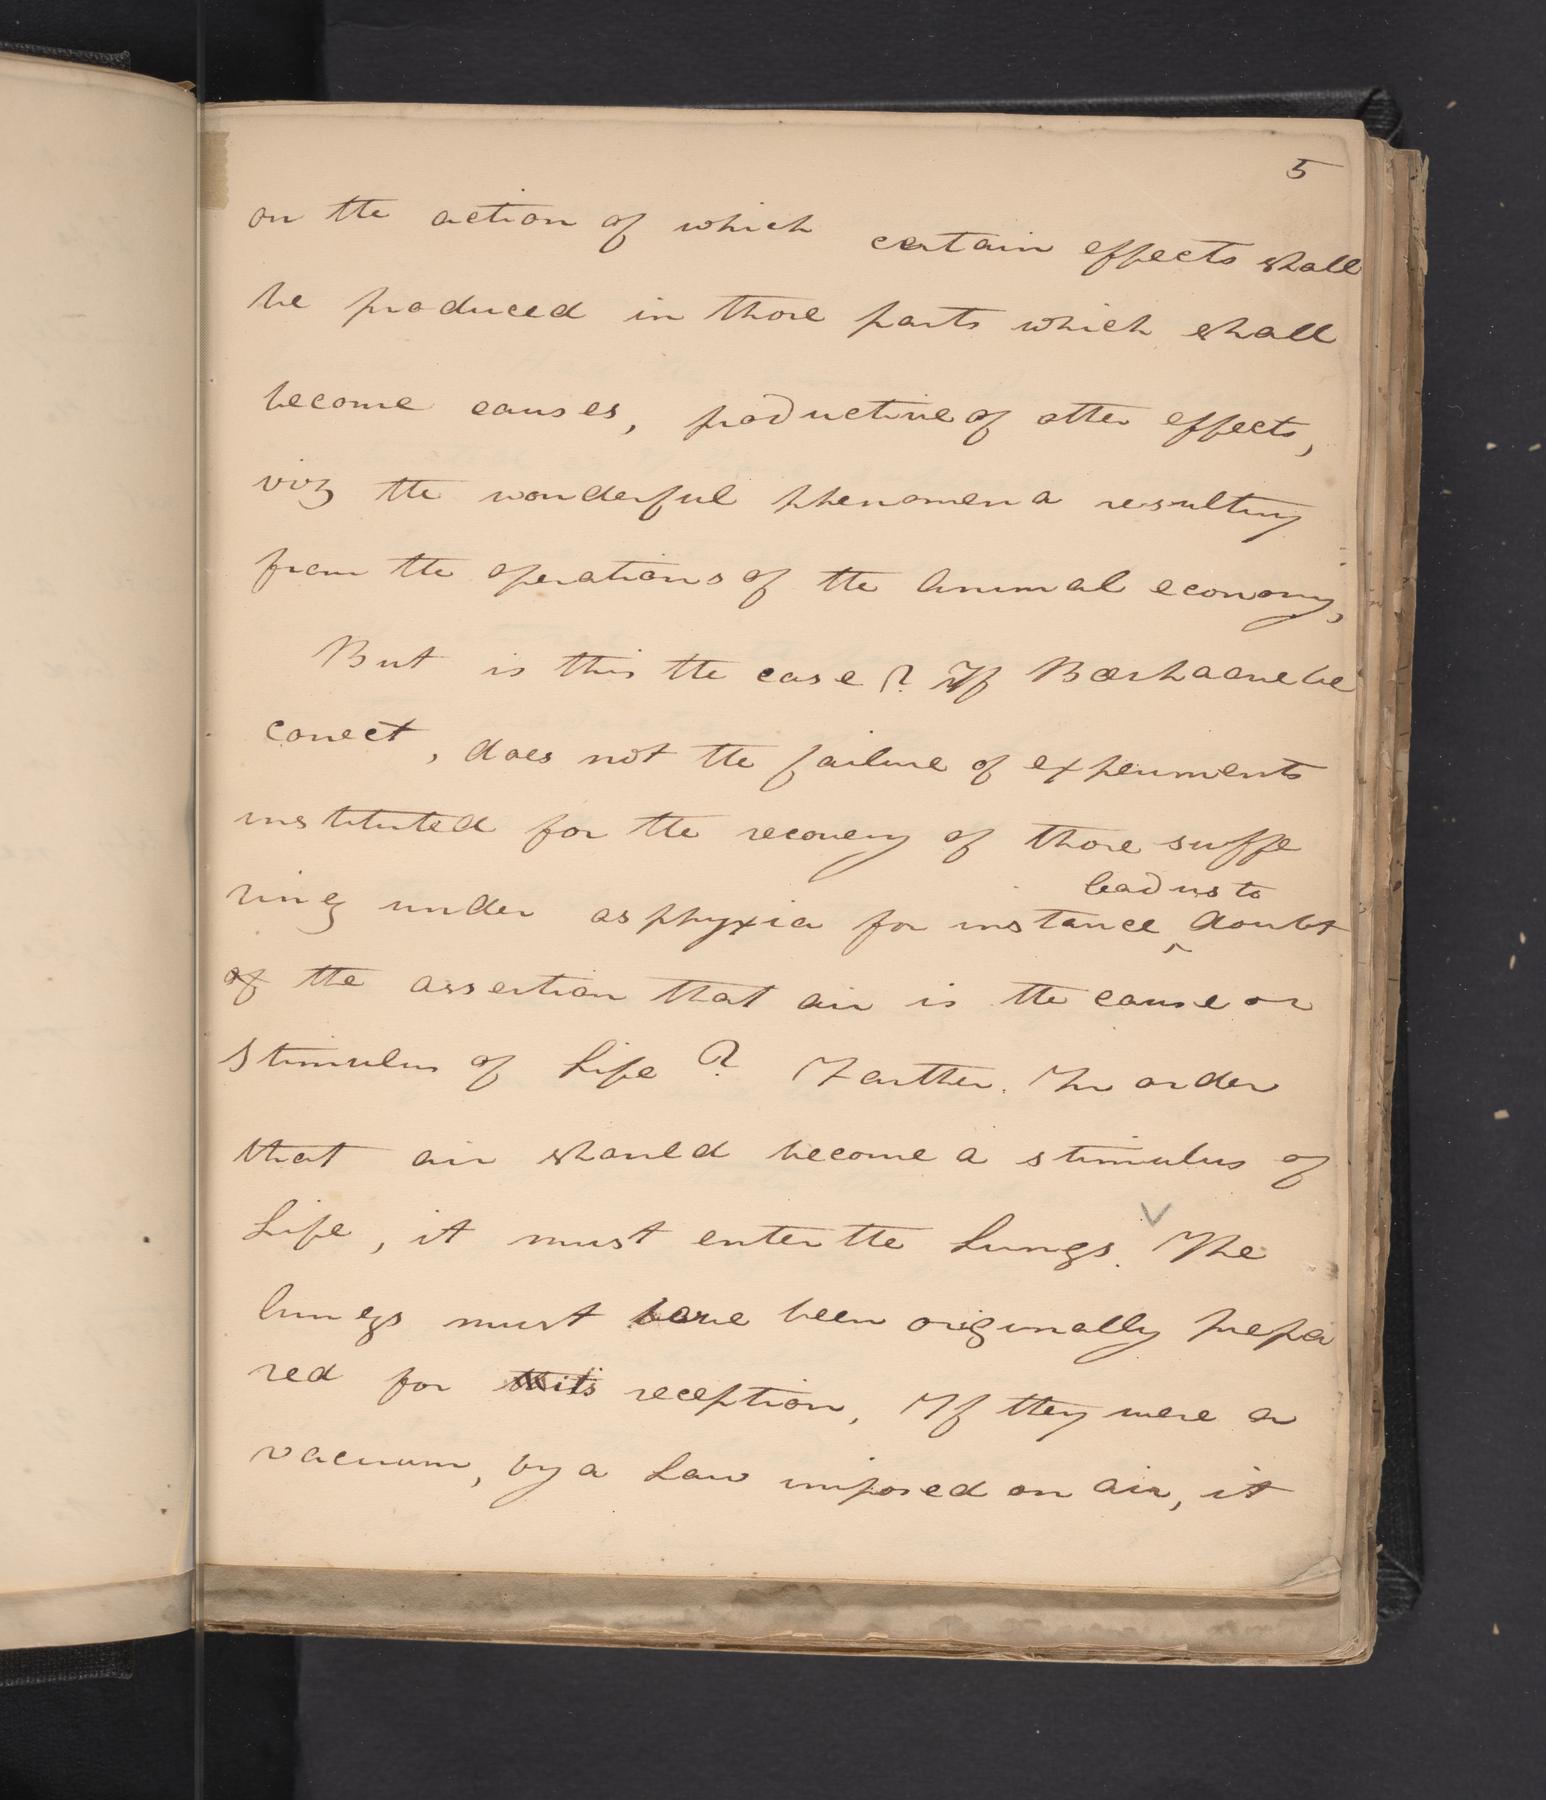 5
on the action of which certain effects shall
be produced in those parts which shall
become causes, productive of other effects,
viz the wonderful phenomena resulting
from the operations of the Animal economy,
But is this the case? If Bœrhaave be
correct, does not the failure of experiments
instituted for the recovery of those suffe
lead us to
ring under asphyxia for instance ‸ doubt
of the assertion that air is the cause or
Stimulus of Life? Farther. In order
that air should become a stimulus of
Life, it must enter the Lungs. The
lungs must have been originally prepa
red for its reception, If they were a
vacuum, by a Law imposed on air, it